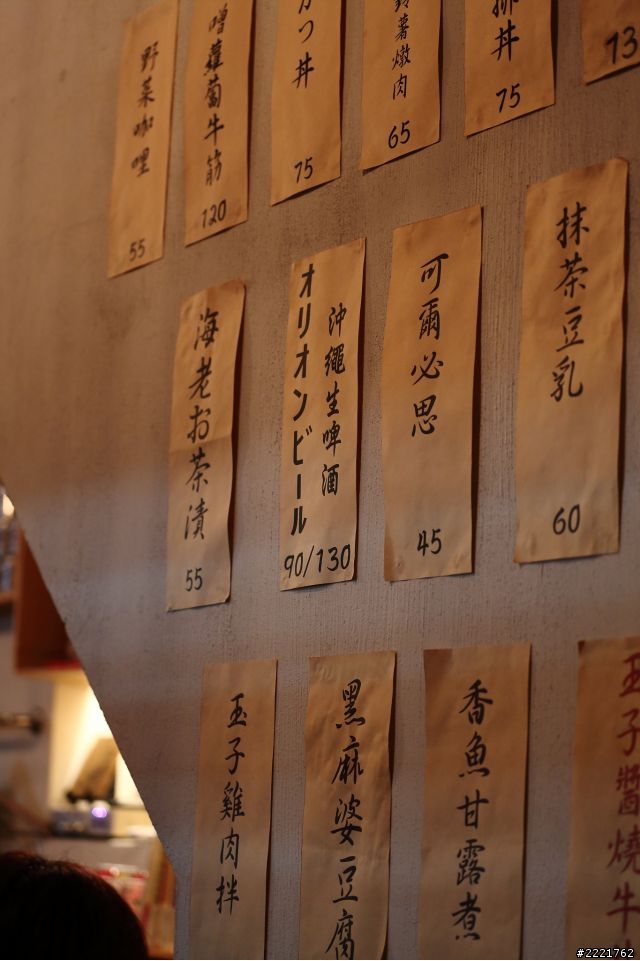 野菜咖哩
55
噌蘿蔔牛筋
120
かつ丼
75
薯燉肉
65
排丼
75
73
海老お茶漬
55
沖繩生啤酒
オリオンビール
90/130
可爾必思
45
抹茶豆乳
60
玉子雞肉拌
黑麻婆豆腐
香魚甘露煮
玉子醬燒牛
#2221762